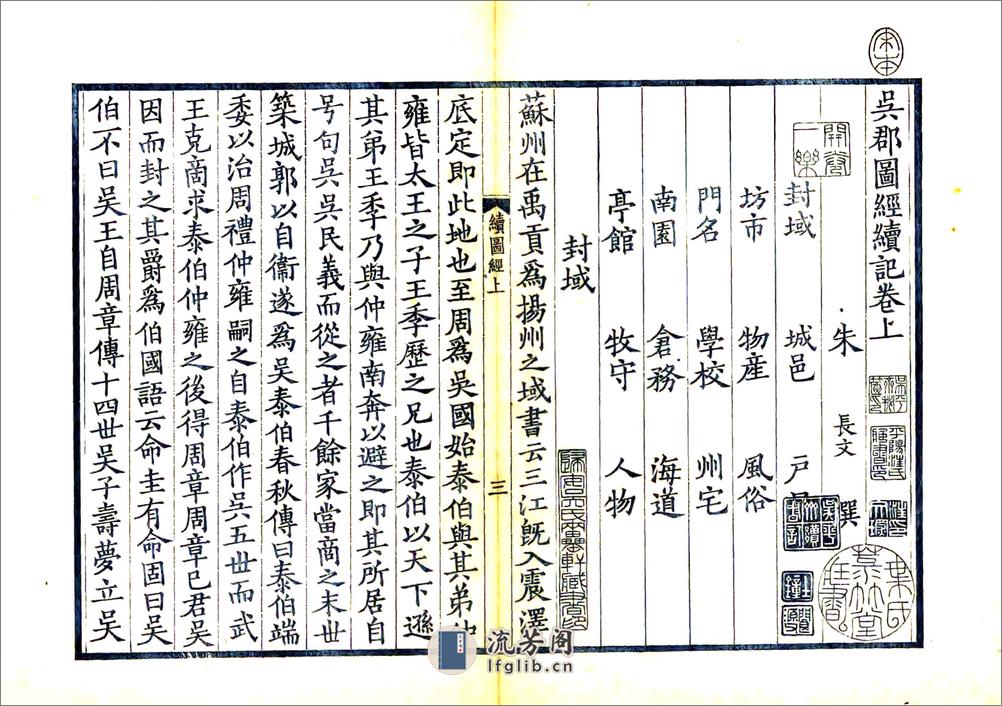 宋本
吳郡圖經續記卷上
朱 長文 撰
開卷一樂
封域 城邑 戶
坊市 物產 風俗
門名 學校 州宅
南園 倉務 海道
亭館 牧守 人物
封域
蘇州在禹貢爲揚州之域書云三江旣入震澤
底定即此地也至周爲吳國始泰伯與其弟仲
續圖經上 三
雍皆太王之子王季歷之兄也泰伯以天下遜
其弟王季乃與仲雍南奔以避之即其所居自
号句吳吳民義而從之者千餘家當商之末世
築城郭以自衞遂爲吳泰伯春秋傳曰泰伯端
委以治周禮仲雍嗣之自泰伯作吳五世而武
王克商求泰伯仲雍之後得周章周章已君吳
因而封之其爵爲伯國語云命圭有命固曰吳
伯不曰吳王自周章傳十四世吳子壽夢立吳
流芳阁
lfglib.cn